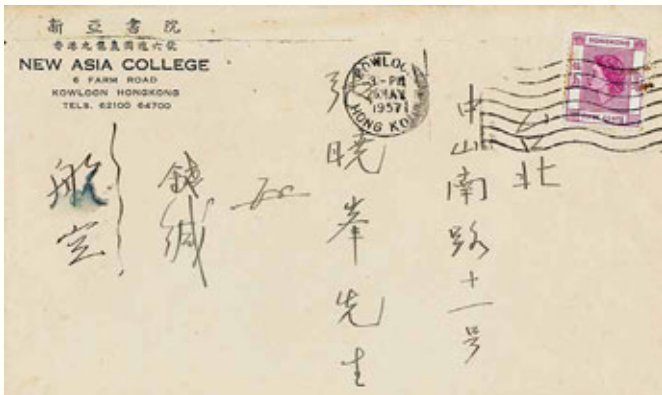 新亞書院
香港九龍農圃道六號
NEW ASIA COLLEGE
6 FARM ROAD
KOWLOON HONGKONG
TELS. 62100 64700
KOWLOO
3-PM
MAY
1957
HONG KO
HONGKONG
台北
中山南路十一号
張暁峯先生
錢緘
航空